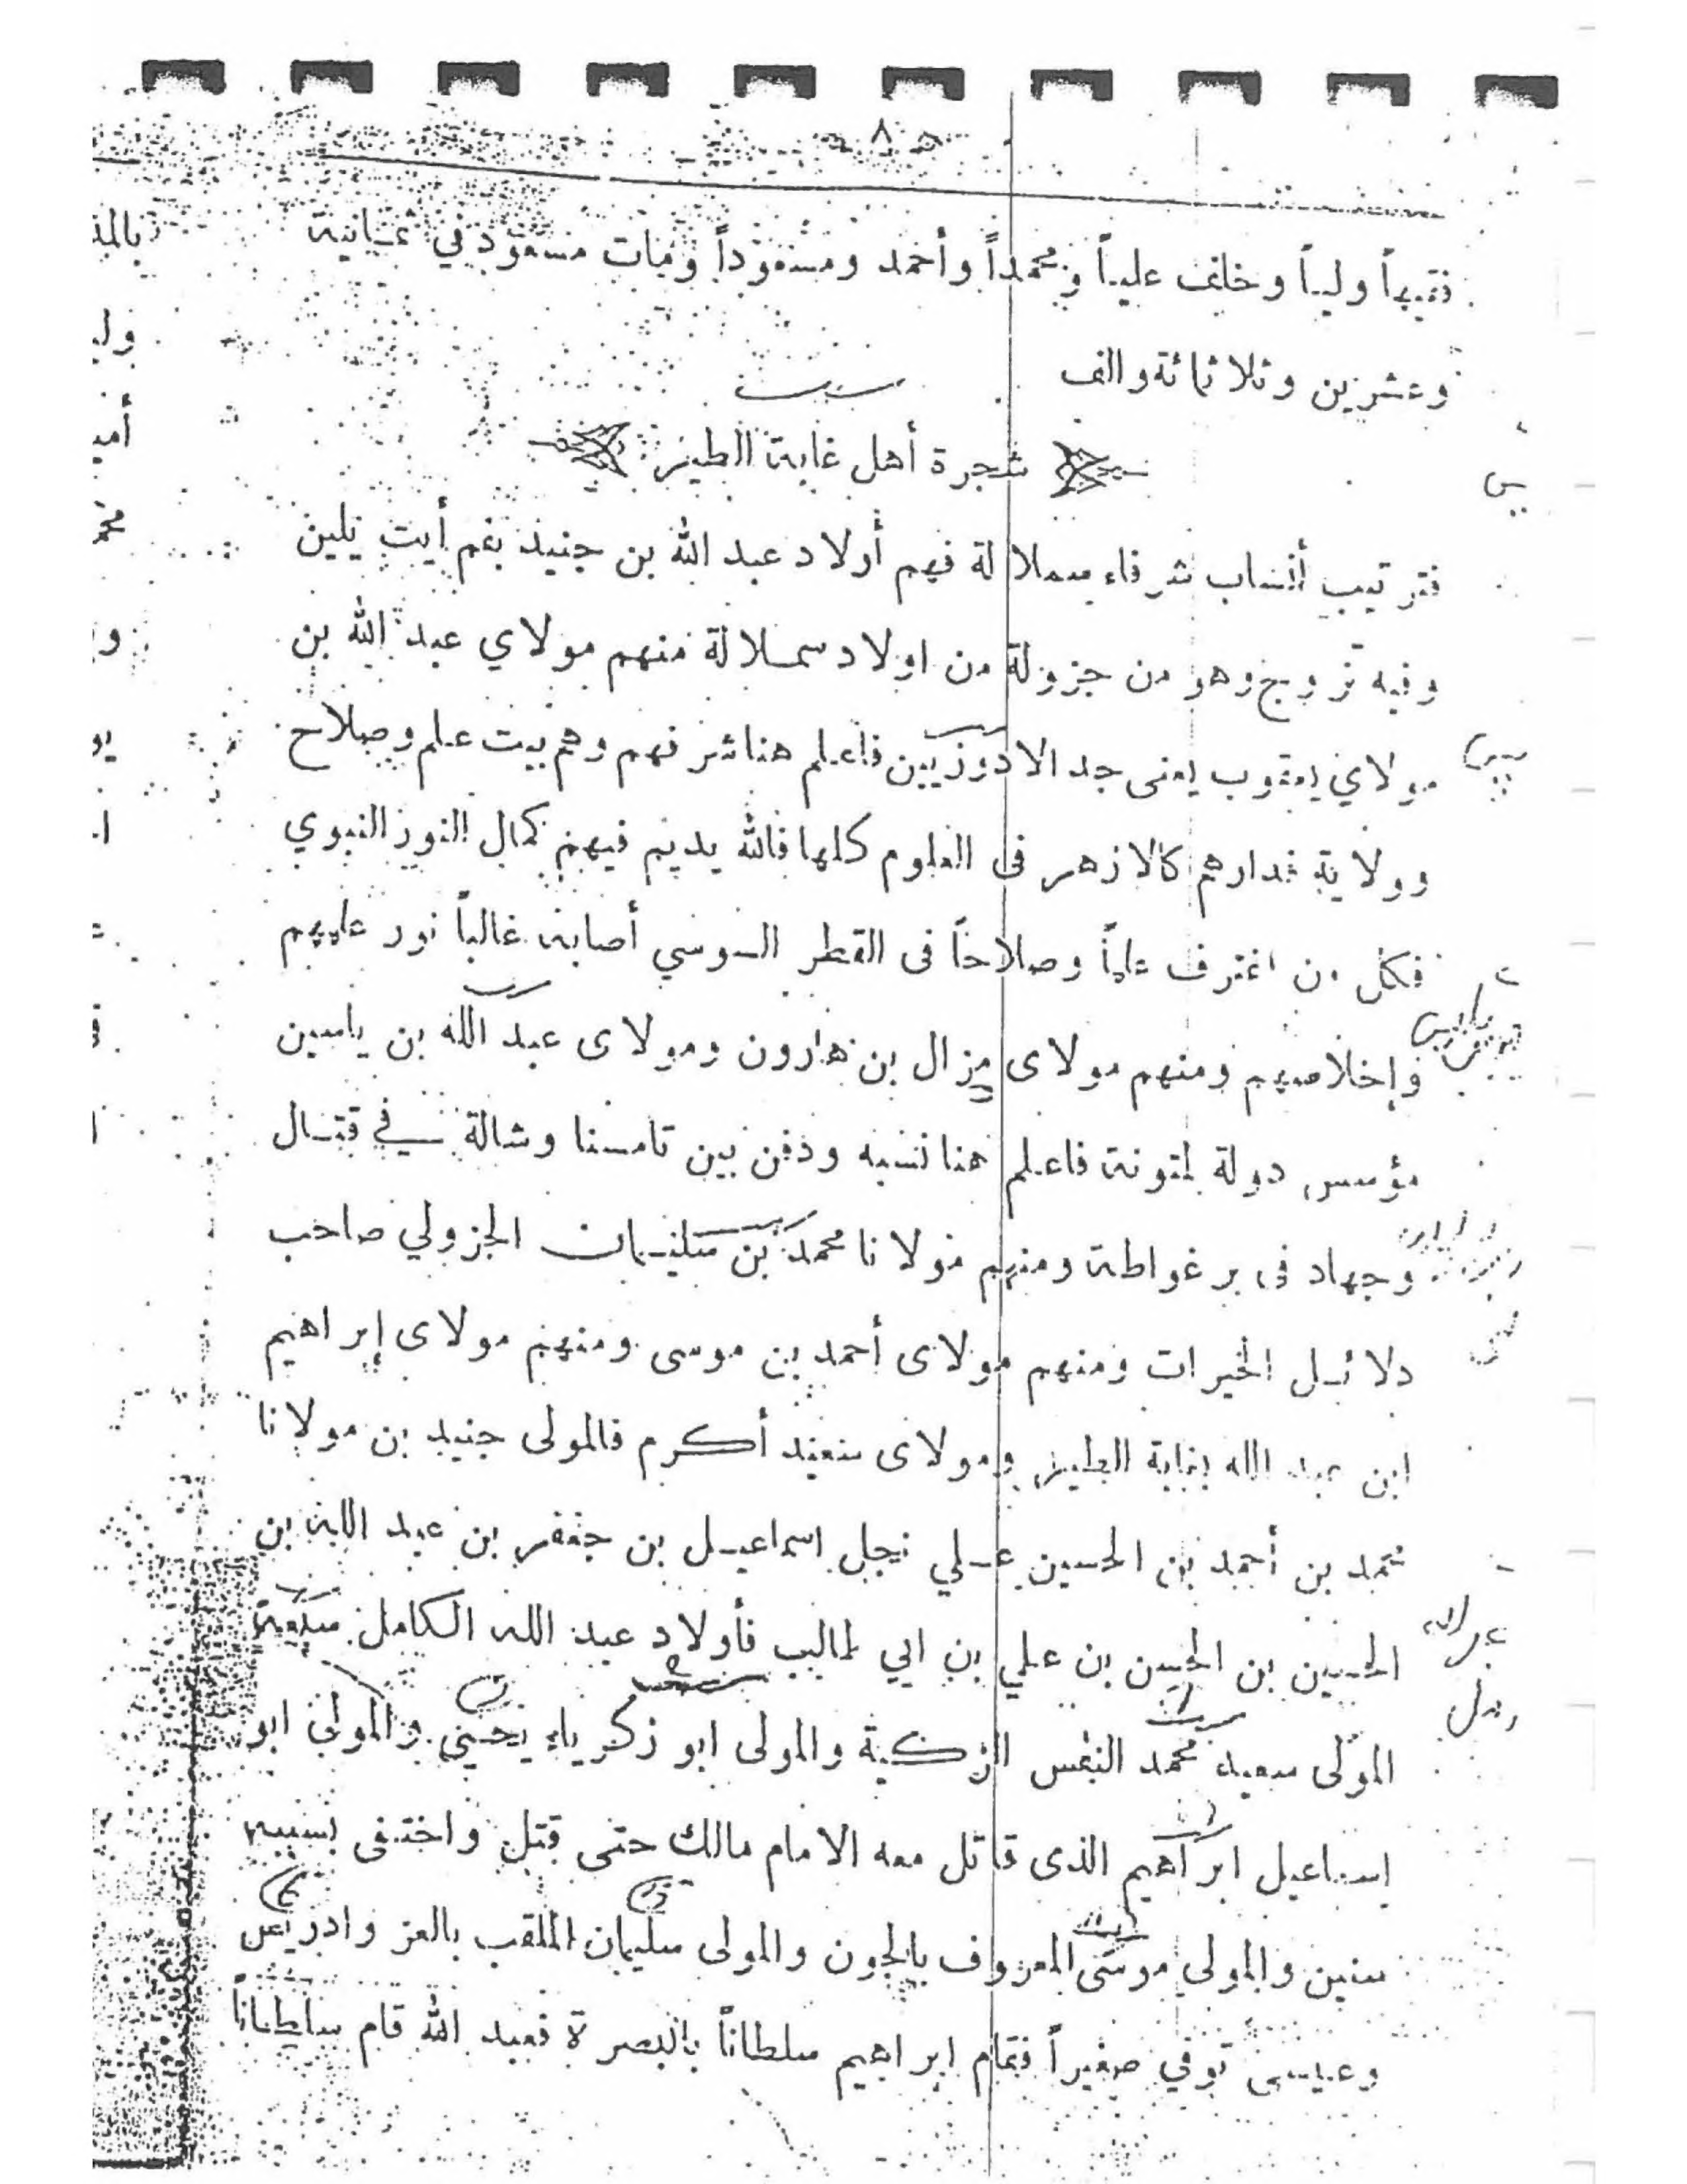 ٨
فقيهاً ولياً وخلف علياً ومحمداً وأحمد ومسعوداً ومات مسعود في ثمانية
وعشرين وثلاثمائة والف
شجرة أهل غابة الطير
فترتيب أنساب شرفاء سملالة فهم أولاد عبد الله بن جنيد بفم أيت يلين
وفيه تزوج وهو من جزولة من اولاد سملالة منهم مولاي عبد الله بن
مولاي يعقوب يعنى جد الادوزيين فاعلم هنا شرفهم وهم بيت علم وصلاح
وولاية فدارهم كالازهر فى العلوم كلها فالله يديم فيهم كمال النور النبوي
فكل من اغترف علماً وصلاحاً فى القطر السوسي أصابه غالباً نور علمهم
وإخلاصهم ومنهم مولاى مزال بن هارون ومولاى عبد الله بن ياسين
مؤسس دولة لمتونة فاعلم هنا نسبه ودفن بين تامسنا وشالة في قتال
وجهاد فى برغواطة ومنهم مولانا محمد بن سليمان الجزولي صاحب
دلائل الخيرات ومنهم مولاى أحمد بن موسى ومنهم مولاى إبراهيم
ابن عبد الله بغابة الطير ومولاى سعيد أكرم فالمولى جنيد بن مولانا
محمد بن أحمد بن الحسين علي نجل اسماعيل بن جعفر بن عبد الله بن
الحسين بن الحسن بن علي بن ابي طالب فأولاد عبد الله الكامل سبعة
المولى سعيد محمد النفس الزكية والمولى ابو زكرياء يحيى والمولى ابو
إسماعيل ابراهيم الذى قاتل معه الامام مالك حتى قتل واختفى بسببه
سنين والمولى موسى المعروف بالجون والمولى سليمان الملقب بالعز وادريس
وعيسى توفي صغيراً فقام ابراهيم سلطاناً بالبصرة فعبد الله قام سلطاناً